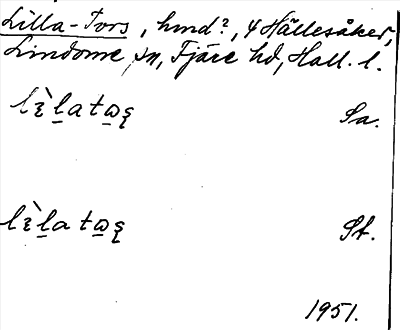 Lilla-Tors, hmd?, 4 Hällesåker,
Lindome sn, Fjäre hd, Hall. l.
Sa.
St.
1951.